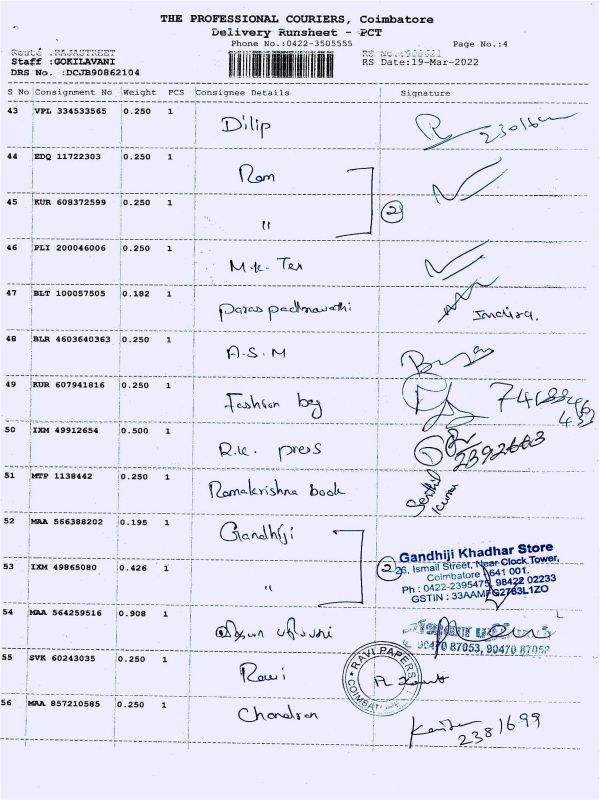 THE PROFESSIONAL COURIERS, Coimbatore
Delivery Runsheet - PCT
Phone No.:0422-3505555
Page No.:4
Route :RAJASTREET
RS No.:908621
Staff :GOKILAVANI
RS Date:19-Mar-2022
DRS No. :DCJB90862104
S No Consignment No Weight PCS Consignee Details Signature
43 VPL 334533565 0.250 1 Dilip
44 EDQ 11722303 0.250 1 Ram
45 KUR 608372599 0.250 1 " 2
46 PLI 200046006 0.250 1 M.K. Tex
47 BLT 100057505 0.182 1 Paras padmavathi Indira.
48 BLR 4603640363 0.250 1 A.S.M
49 KUR 607941816 0.250 1 Fashion bag
50 IXM 49912654 0.500 1 R.K. press
51 MTP 1138442 0.250 1 Ramakrishna book Senthil Kumar
52 MAA 566388202 0.195 1 Gandhiji
53 IXM 49865080 0.426 1 " 2
Gandhiji Khadhar Store
26, Ismail Street, Near Clock Tower,
Coimbatore - 641 001.
Ph : 0422-2395475, 98422 02233
GSTIN : 33AAMFG2763L1ZO
54 MAA 564259516 0.908 1
90470 87053, 90470 87052
55 SVK 60243035 0.250 1 Ravi
RAVI PAPERS
COIMBATORE
56 MAA 857210585 0.250 1 Chandran
2381699